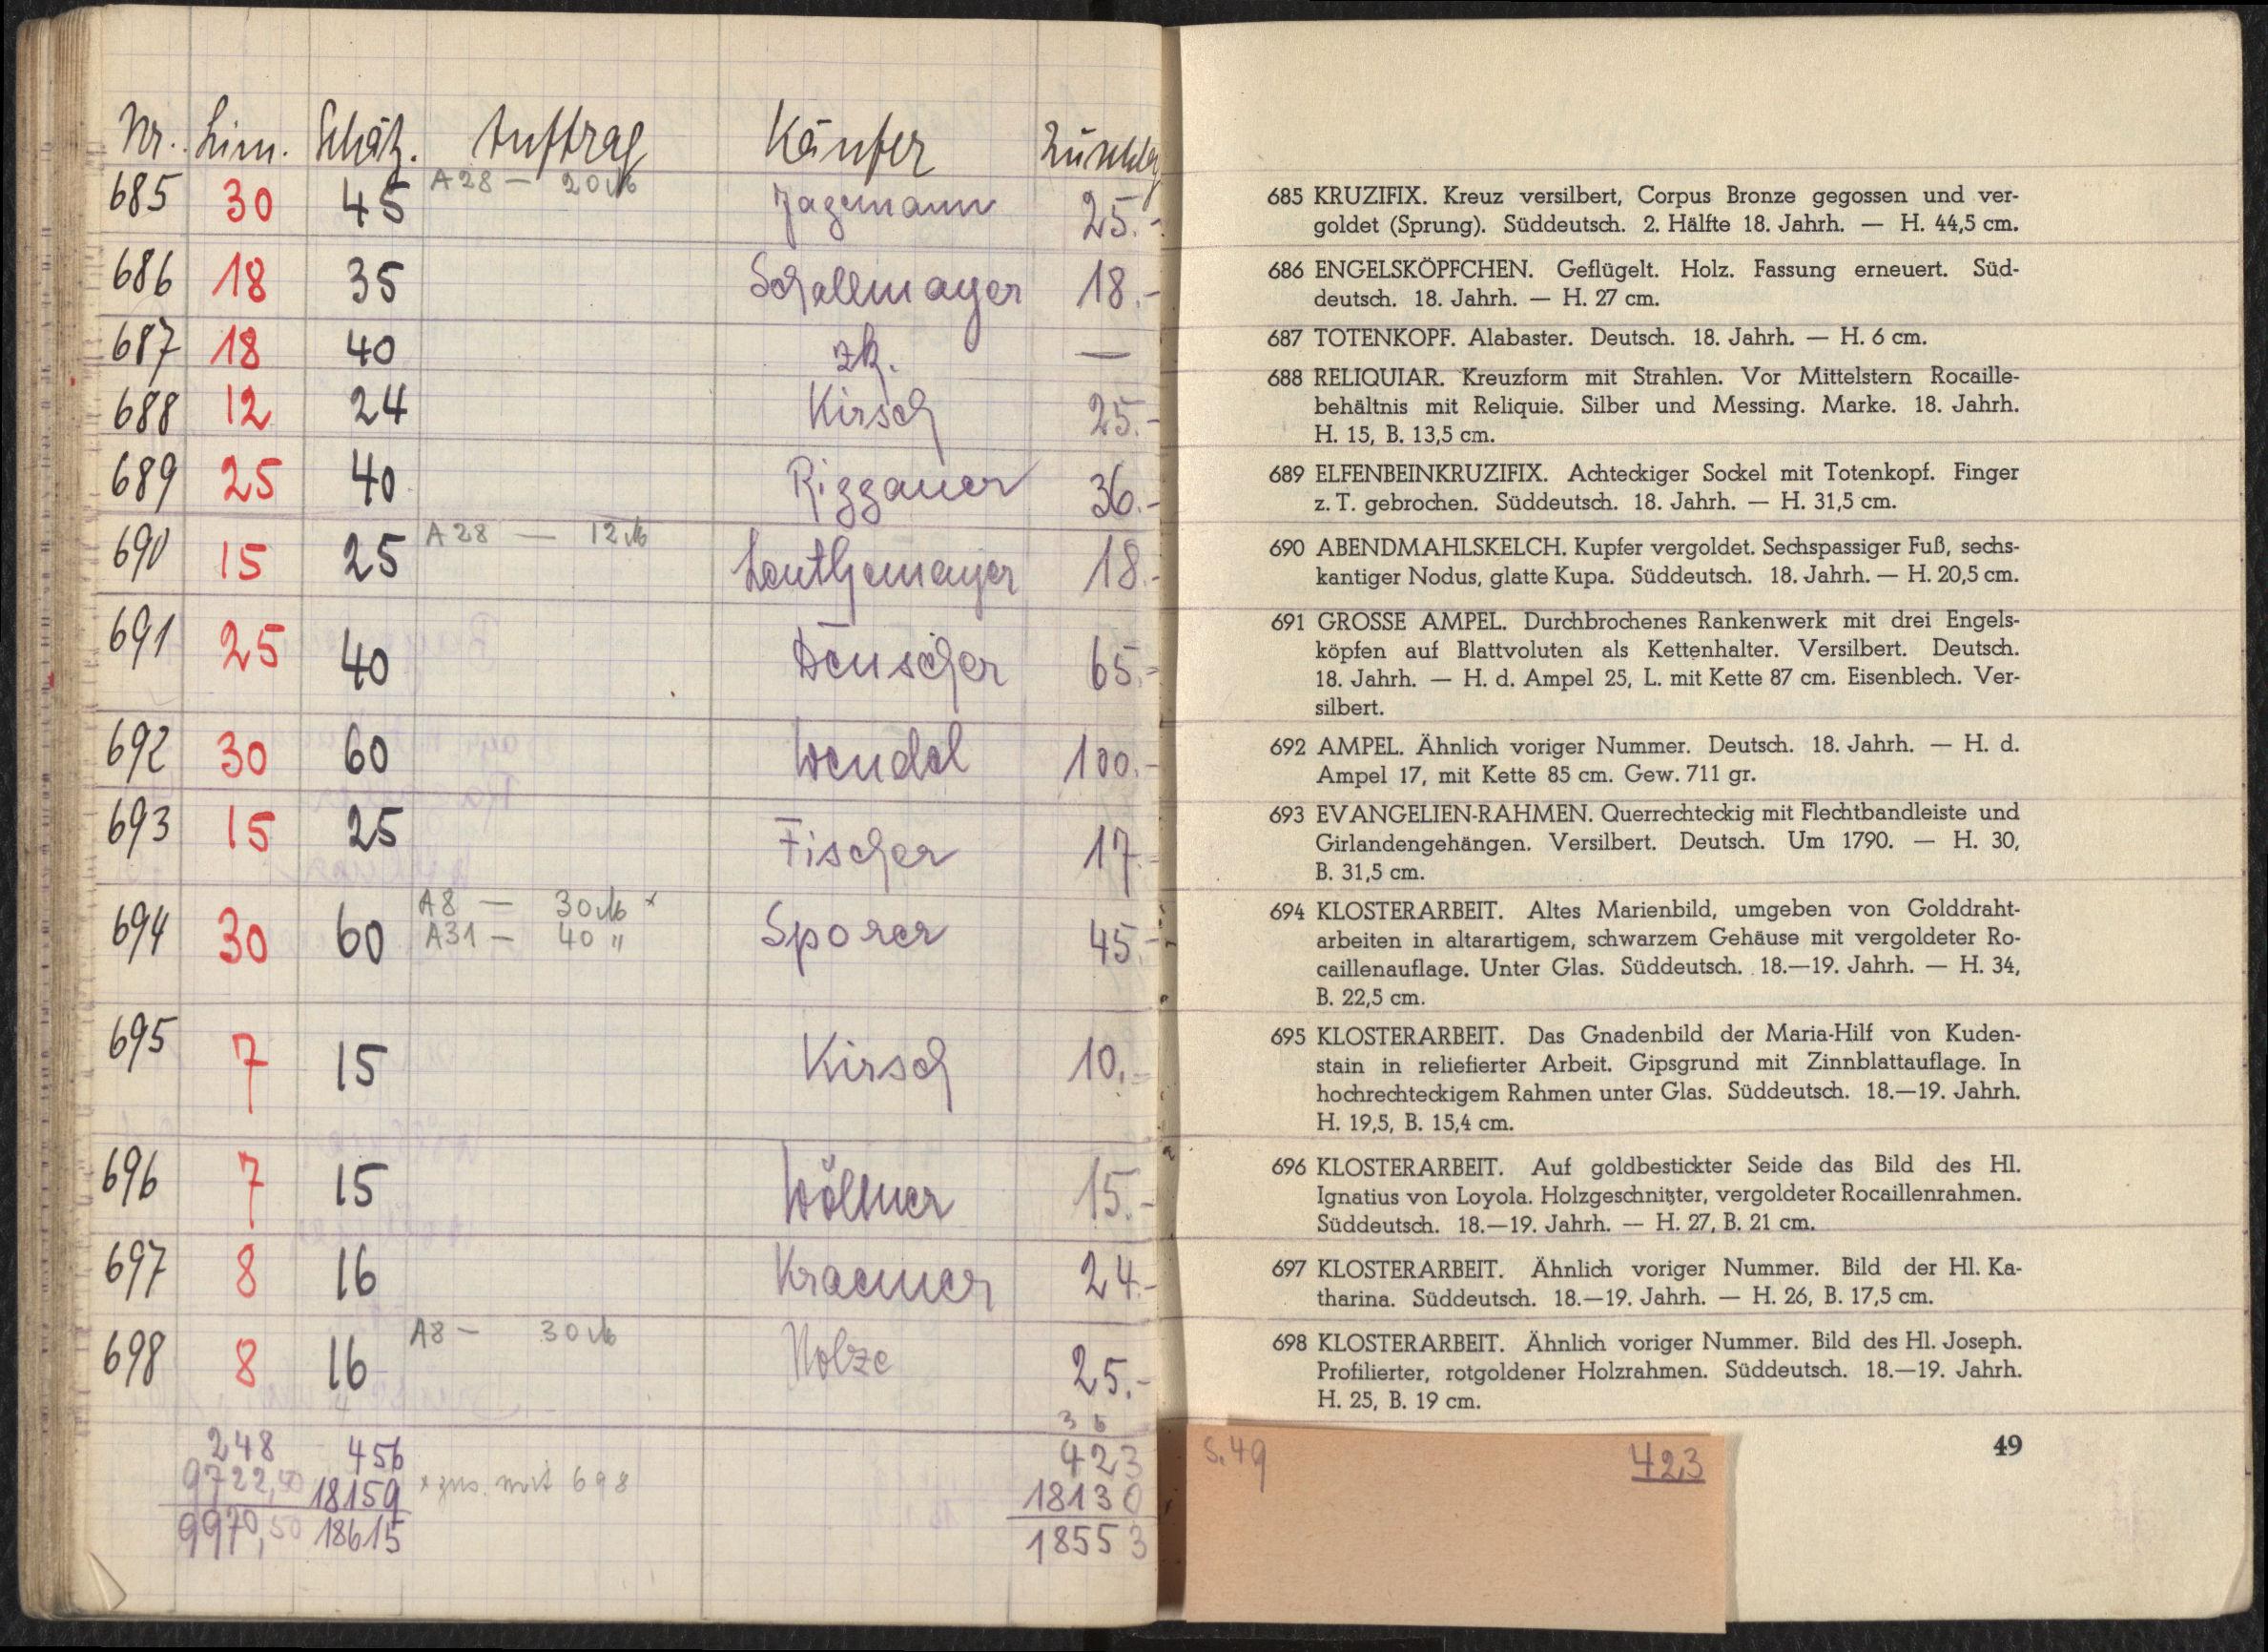 Nr. Lim. Schätz. Auftrag Käufer Zuschlag
685 30 45 A28 — 20 M Jagemann 25.-
686 18 35 Schallmayer 18.-
687 18 40 zk. —
688 12 24 Kirsch 25.-
689 25 40 Riggauer 36.-
690 15 25 A28 — 12 M Leuthemayer 18.-
691 25 40 Deuscher 65.-
692 30 60 Wendel 100.-
693 15 25 Fischer 17.-
A8 — 30 M x
694 30 60 A31 — 40 " Sporer 45.-
695 7 15 Kirsch 10.-
696 7 15 Wöllner 15.-
697 8 16 Kraemer 24.-
698 8 16 A8 — 30 M Holze 25.-
3 6
248 456 423
9722,50 18159 x zus. mit 698 18130
9970,50 18615 18553
685 KRUZIFIX. Kreuz versilbert, Corpus Bronze gegossen und ver-
goldet (Sprung). Süddeutsch. 2. Hälfte 18. Jahrh. — H. 44,5 cm.
686 ENGELSKÖPFCHEN. Geflügelt. Holz. Fassung erneuert. Süd-
deutsch. 18. Jahrh. — H. 27 cm.
687 TOTENKOPF. Alabaster. Deutsch. 18. Jahrh. — H. 6 cm.
688 RELIQUIAR. Kreuzform mit Strahlen. Vor Mittelstern Rocaille-
behältnis mit Reliquie. Silber und Messing. Marke. 18. Jahrh.
H. 15, B. 13,5 cm.
689 ELFENBEINKRUZIFIX. Achteckiger Sockel mit Totenkopf. Finger
z. T. gebrochen. Süddeutsch. 18. Jahrh. — H. 31,5 cm.
690 ABENDMAHLSKELCH. Kupfer vergoldet. Sechspassiger Fuß, sechs-
kantiger Nodus, glatte Kupa. Süddeutsch. 18. Jahrh. — H. 20,5 cm.
691 GROSSE AMPEL. Durchbrochenes Rankenwerk mit drei Engels-
köpfen auf Blattvoluten als Kettenhalter. Versilbert. Deutsch.
18. Jahrh. — H. d. Ampel 25, L. mit Kette 87 cm. Eisenblech. Ver-
silbert.
692 AMPEL. Ähnlich voriger Nummer. Deutsch. 18. Jahrh. — H. d.
Ampel 17, mit Kette 85 cm. Gew. 711 gr.
693 EVANGELIEN-RAHMEN. Querrechteckig mit Flechtbandleiste und
Girlandengehängen. Versilbert. Deutsch. Um 1790. — H. 30,
B. 31,5 cm.
694 KLOSTERARBEIT. Altes Marienbild, umgeben von Golddraht-
arbeiten in altarartigem, schwarzem Gehäuse mit vergoldeter Ro-
caillenauflage. Unter Glas. Süddeutsch. 18.—19. Jahrh. — H. 34,
B. 22,5 cm.
695 KLOSTERARBEIT. Das Gnadenbild der Maria-Hilf von Kuden-
stain in reliefierter Arbeit. Gipsgrund mit Zinnblattauflage. In
hochrechteckigem Rahmen unter Glas. Süddeutsch. 18.—19. Jahrh.
H. 19,5, B. 15,4 cm.
696 KLOSTERARBEIT. Auf goldbestickter Seide das Bild des Hl.
Ignatius von Loyola. Holzgeschnitzter, vergoldeter Rocaillenrahmen.
Süddeutsch. 18.—19. Jahrh. — H. 27, B. 21 cm.
697 KLOSTERARBEIT. Ähnlich voriger Nummer. Bild der Hl. Ka-
tharina. Süddeutsch. 18.—19. Jahrh. — H. 26, B. 17,5 cm.
698 KLOSTERARBEIT. Ähnlich voriger Nummer. Bild des Hl. Joseph.
Profilierter, rotgoldener Holzrahmen. Süddeutsch. 18.—19. Jahrh.
H. 25, B. 19 cm.
49
S. 49 423